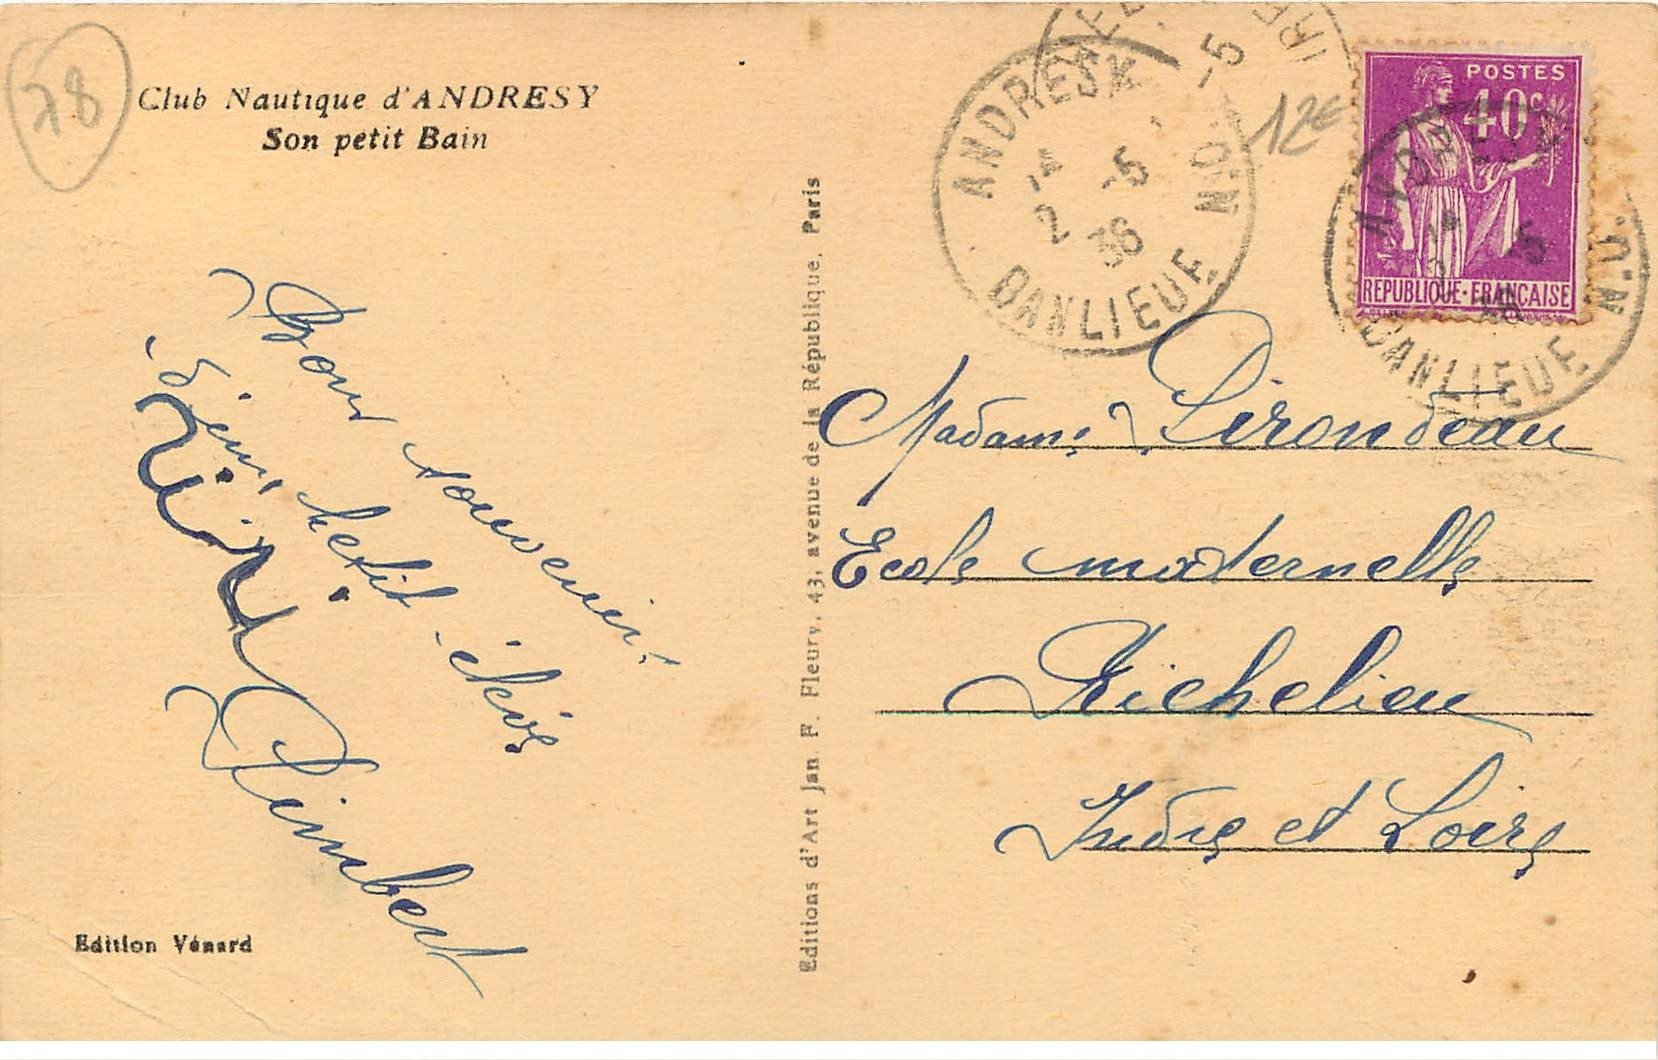 78
Club Nautique d'ANDRESY
Son petit Bain
Bon souvenir
d'un petit élève
Rimbert
Edition Vénard
Editions d'Art Jan F. Fleury, 43, avenue de la République, Paris
ANDRESY
14
2 -5
36
BANLIEUE N.O.
12€
POSTES
40c
REPUBLIQUE·FRANÇAISE
ANDRESY
BANLIEUE N.O.
Madame Pirondeau
Ecole maternelle
Richelieu
Indre et Loire